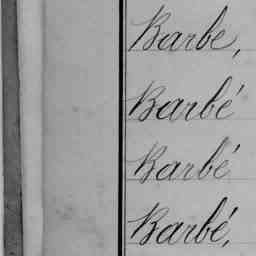 Barbé,
Barbé
Barbé
Barbé,